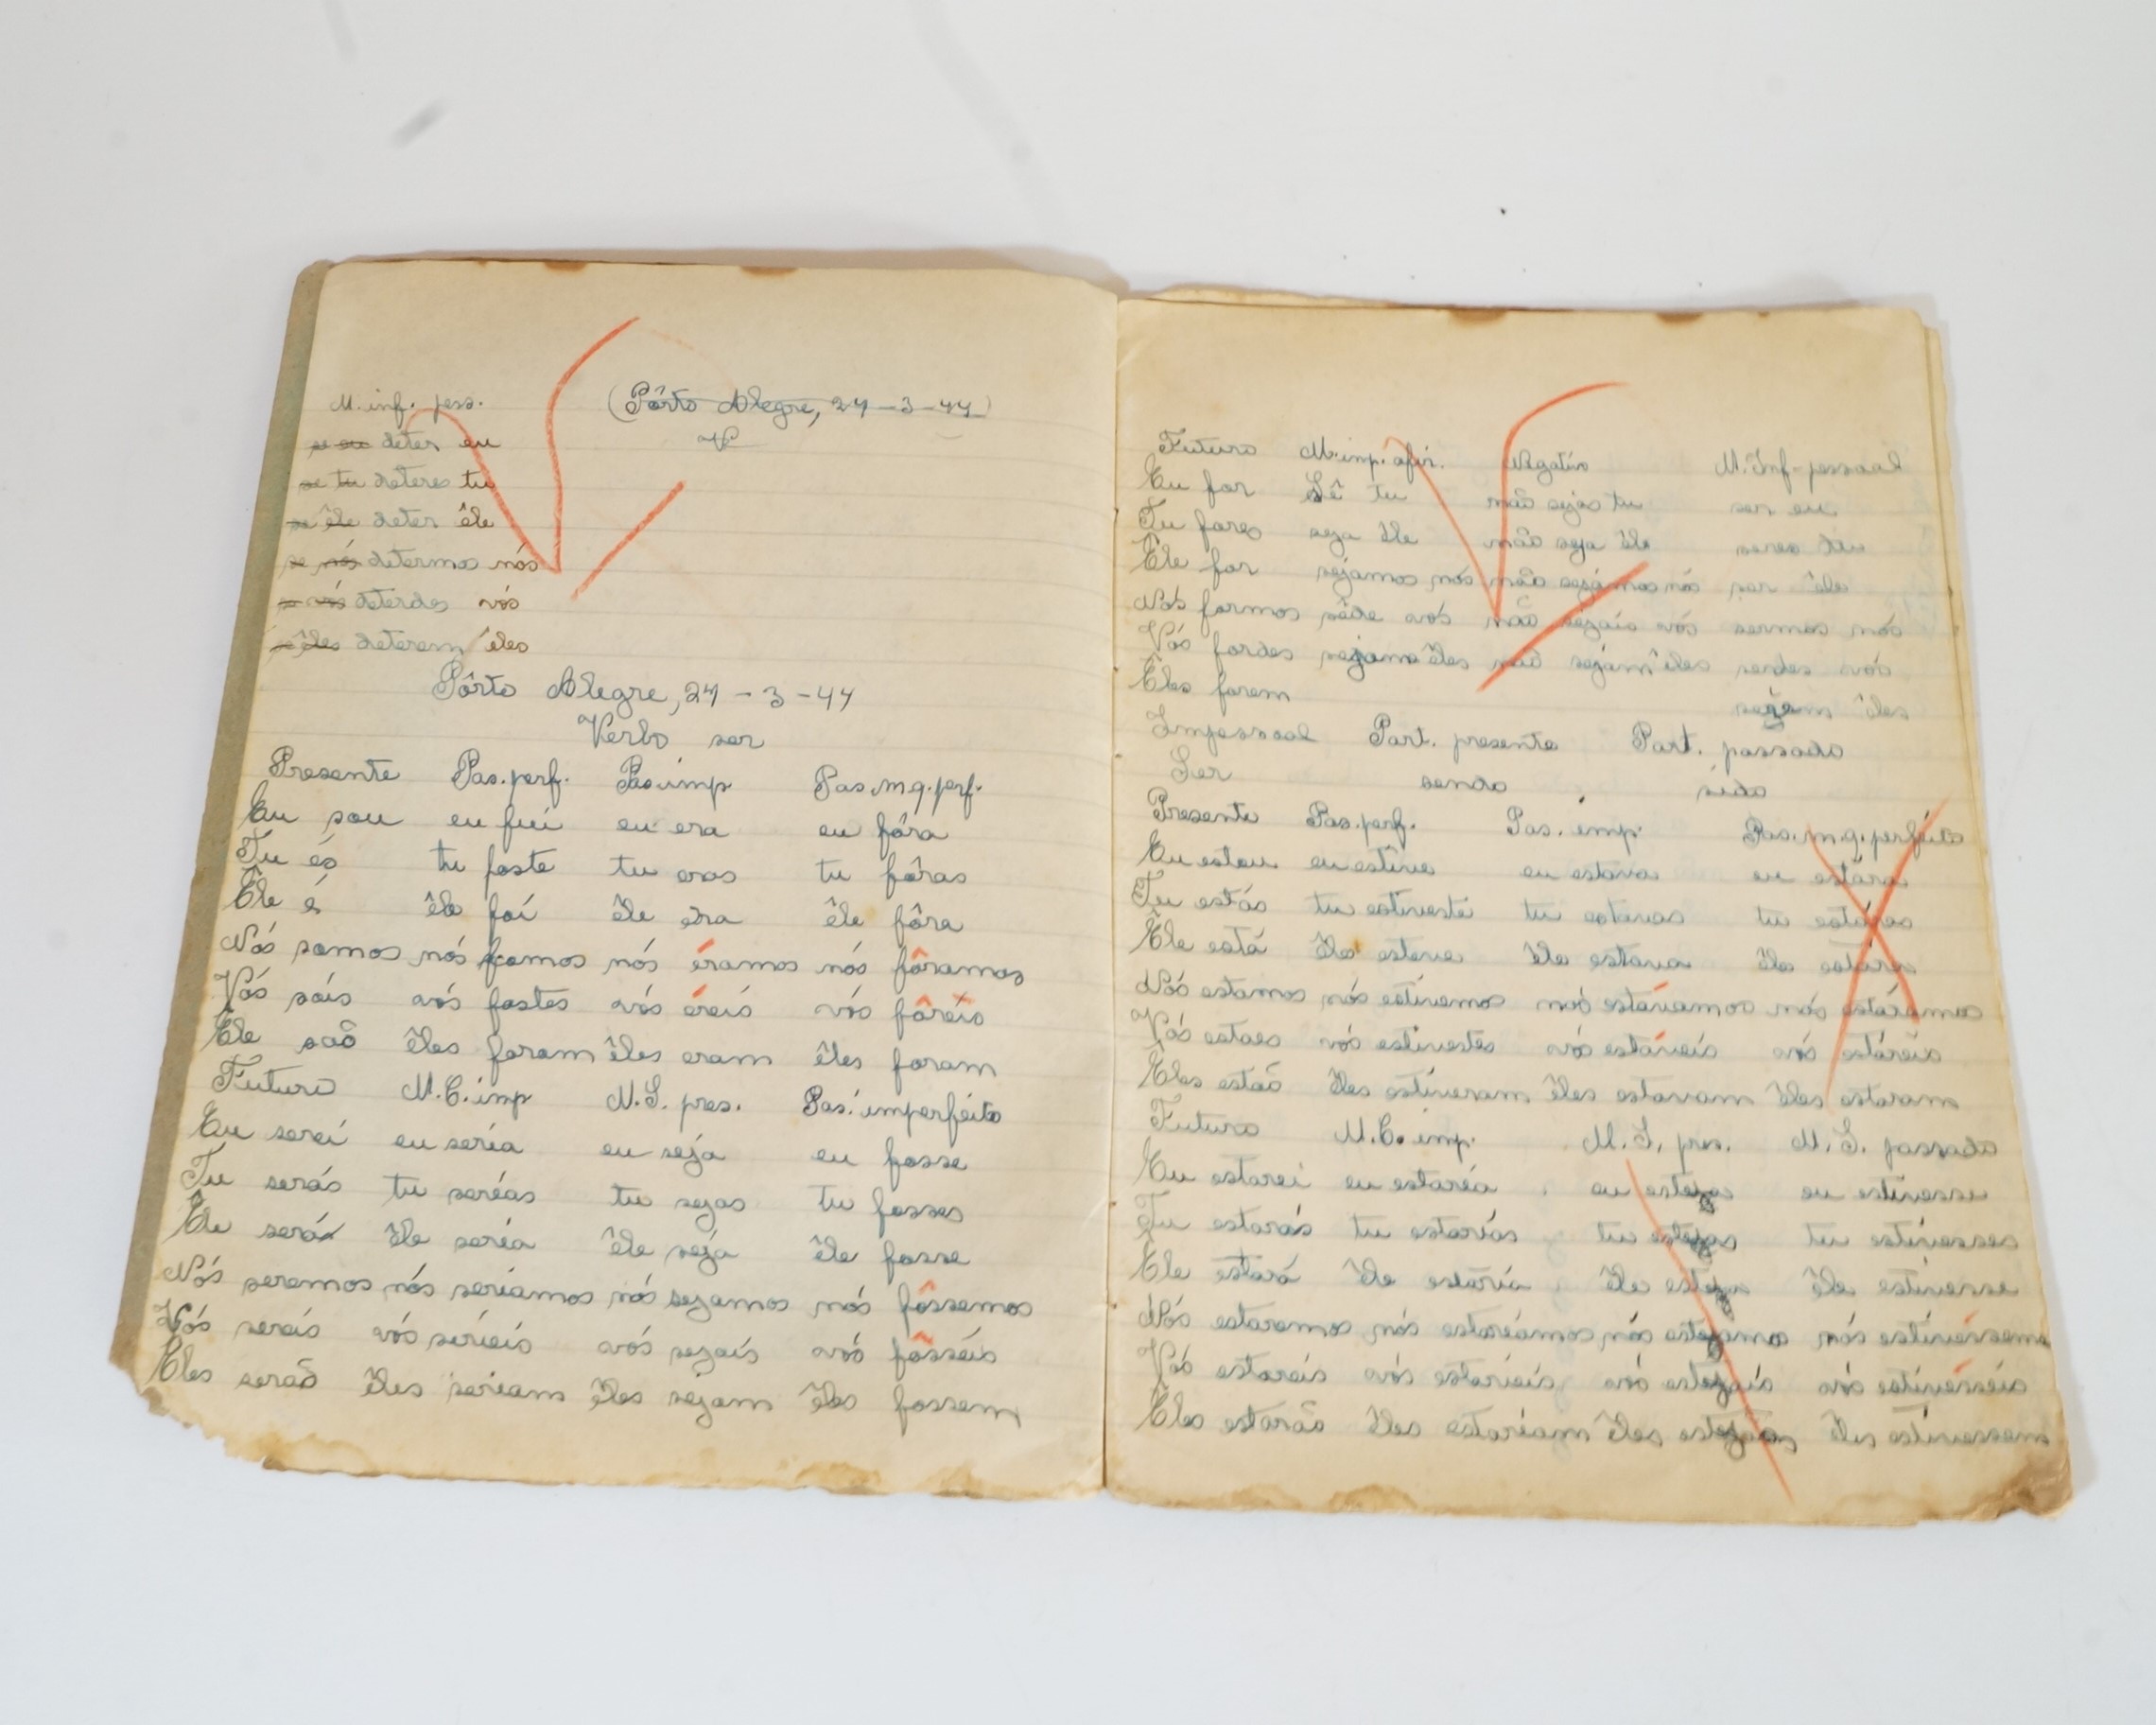 M. inf. pess. (Pôrto Alegre, 24-3-44)
se eu deter eu
se tu deteres tu
se êle deter êle
se nós determos nós
se vós deterdes vós
se êles deterem êles
Pôrto Alegre, 24-3-44
Verbo ser
Presente Pas. perf. Pas imp Pas m q. perf.
Eu sou eu fui eu era eu fôra
Tu és tu foste tu eras tu fôras
Êle é êle foi êle era êle fôra
Nós somos nós fomos nós éramos nós fôramos
Vós sois vós fostes vós éreis vós fôreis
Êle são êles foram êles eram êles foram
Futuro M. C. imp M. S. pres. Pas. imperfeito
Eu serei eu seria eu seja eu fosse
Tu serás tu serias tu sejas tu fosses
Êle será êle seria êle seja êle fosse
Nós seremos nós seriamos nós sejamos nós fôssemos
Vós sereis vós serieis vós sejais vós fôsseis
Eles serão êles seriam êles sejam êles fossem
Futuro M. imp. afir. Negativo M. Inf-pessoal
Eu for Sê tu não sejas tu ser eu
Tu fores seja êle não seja êle seres tu
Êle for sejamos nós não sejamos nós ser êle
Nós formos sêde vós não sejais vós sermos nós
Vós fordes sejam êles não sejam êles serdes vós
Eles forem êles
Impessoal Part. presente Part. passado
Ser sendo sido
Presente Pas. perf. Pas. imp. Pas. m. q. perfeito
Eu estou eu estive eu estava eu estára
Tu estás tu estiveste tu estavas tu estáras
Êle está êle esteve êle estava êle estára
Nós estamos nós estivemos nós estávamos nós estáramos
Vós estaes vós estivestes vós estáveis vós estáreis
Êles estão êles estiveram êles estavam êles estaram
Futuro M. C. imp. M. S. pres. M. S. passado
Eu estarei eu estaria eu esteja eu estivesse
Tu estarás tu estarias tu estejas tu estivesses
Êle estará êle estaria êle esteja êle estivesse
Nós estaremos nós estaríamos nós estejamos nós estivéssemos
Vós estareis vós estarieis vós estejais vós estivésseis
Eles estarão êles estariam êles estejam êles estivessem